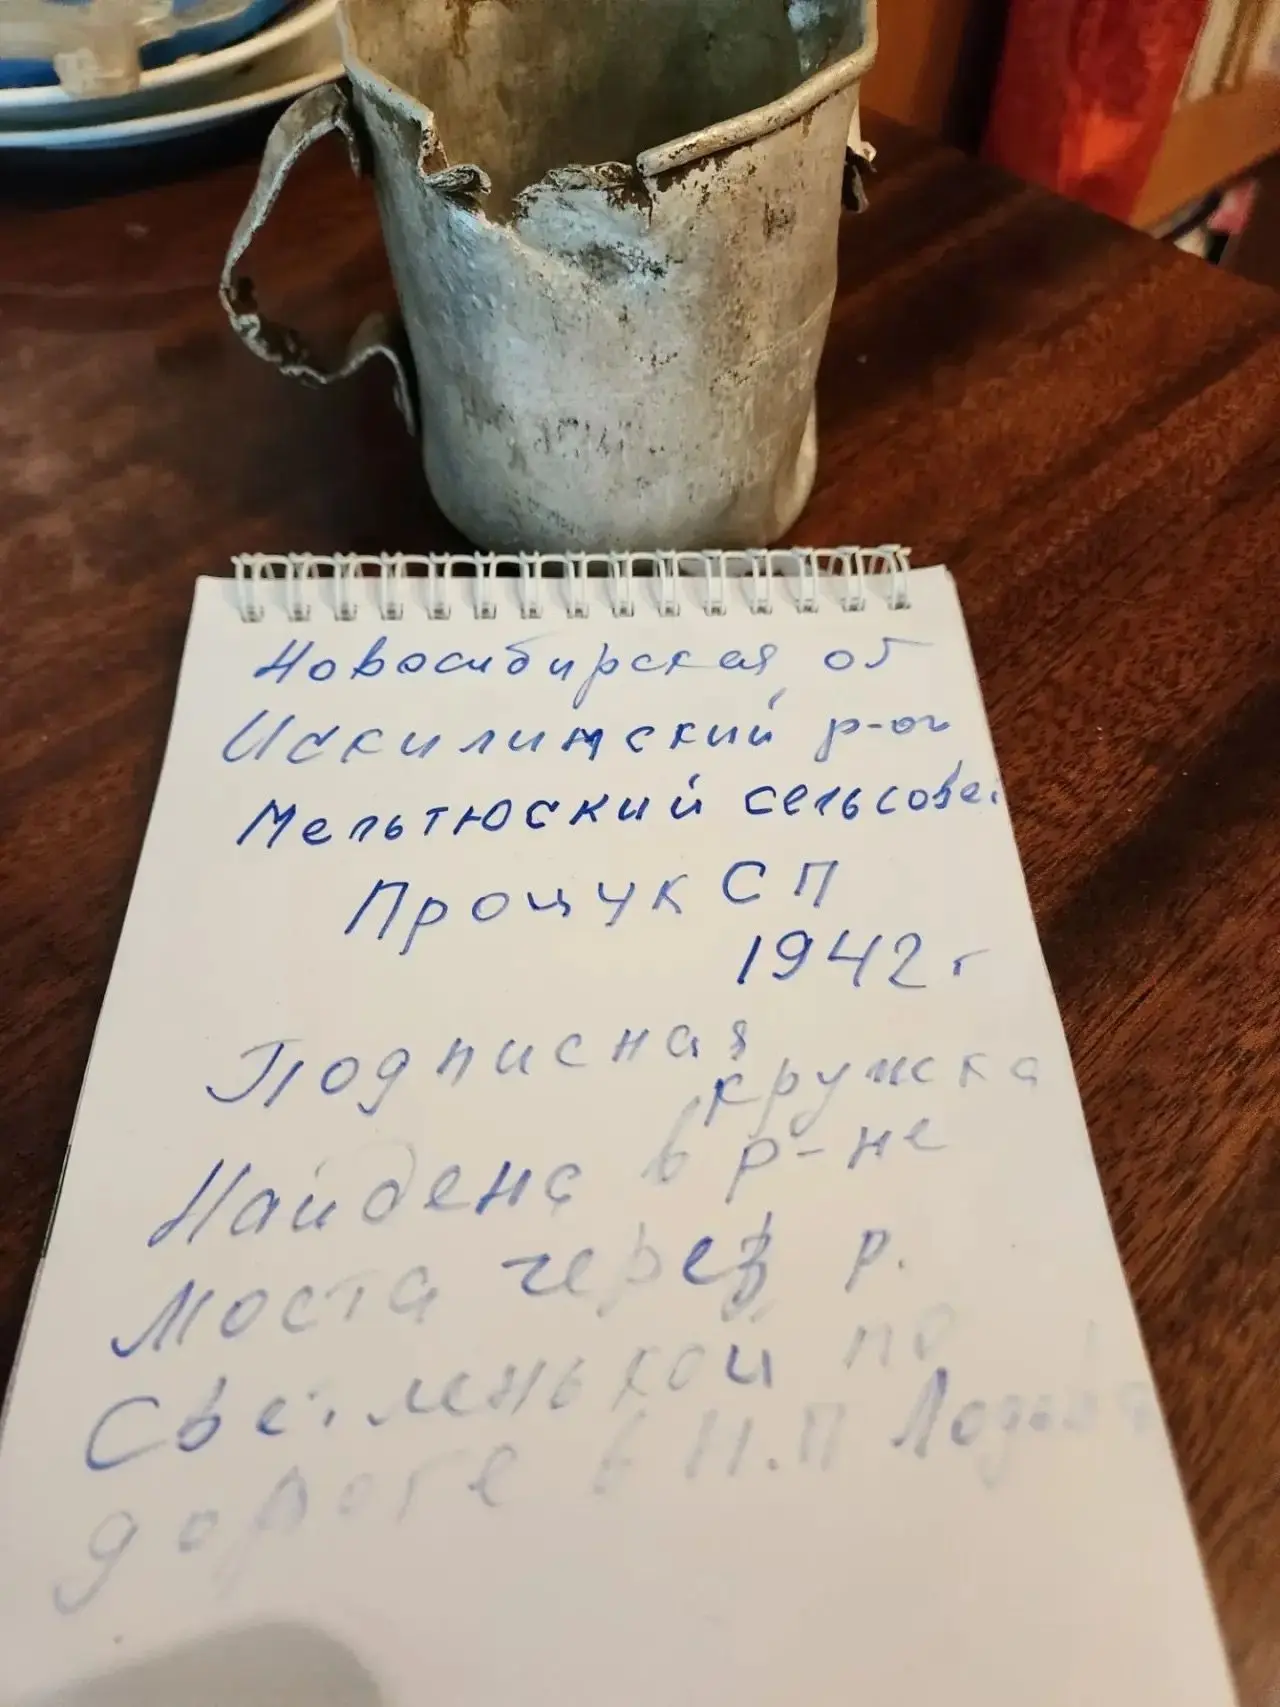 Новосибирская об
Искилимский р-он
Мельтюский сельсове
Процук СП
1942 г
Подписная
кружка
Найдена в р-не
моста через р.
Светленькой по
дороге в Н.П